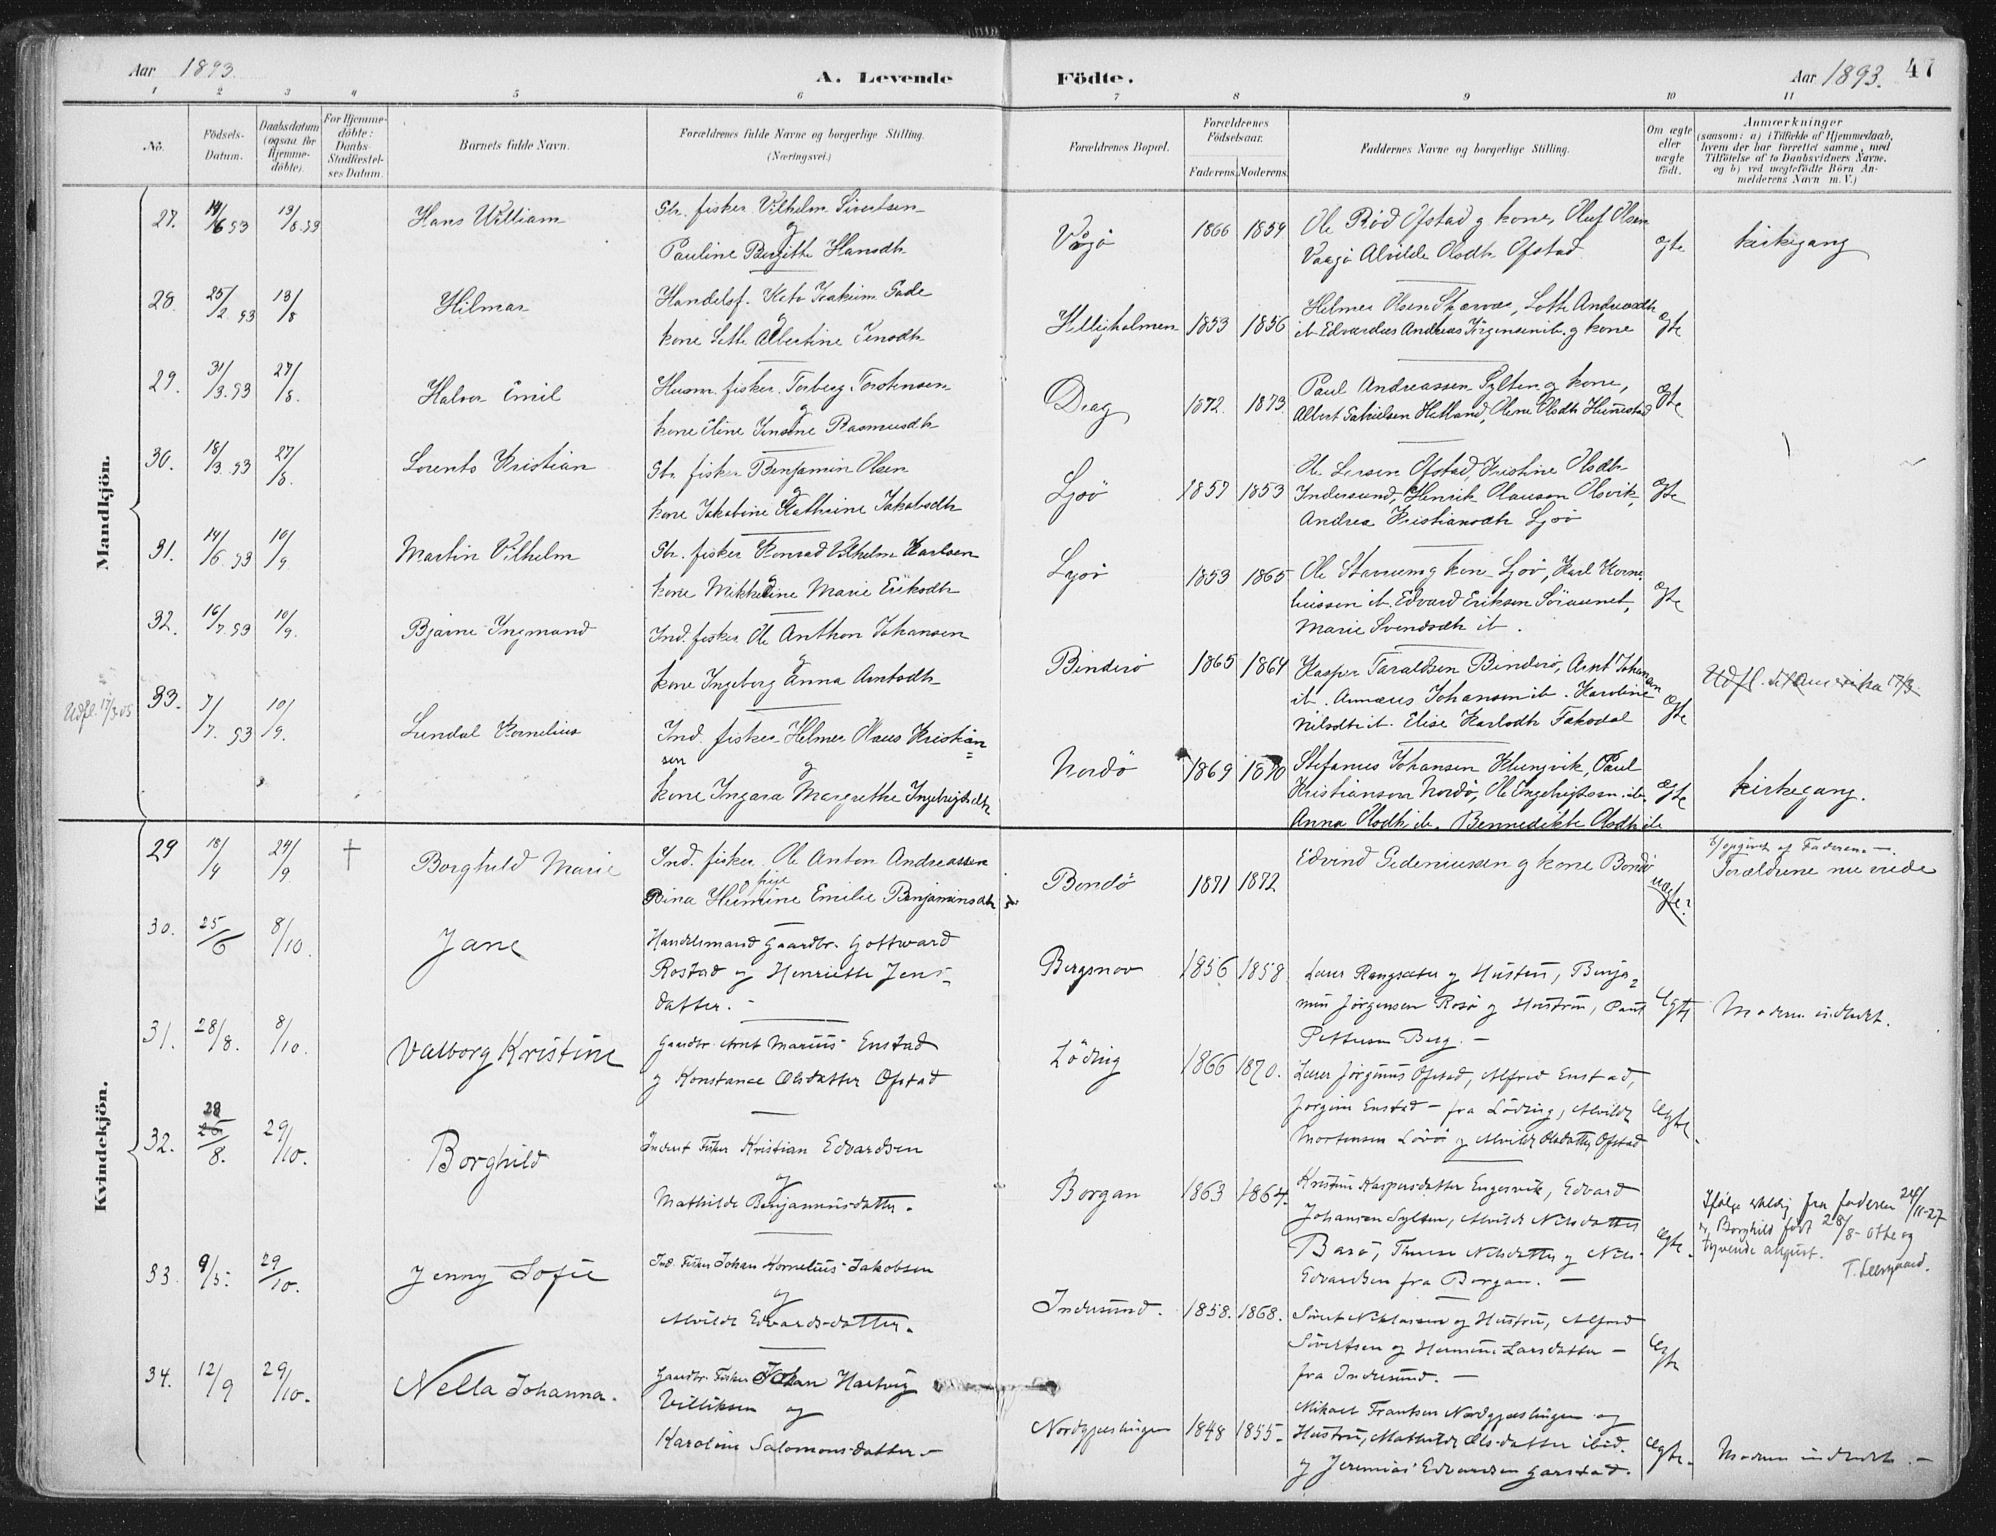 Aar 1893. A. Levende Födte. Aar 1893. 47
1 2 3 4 5 6 7 8 9 10 11
No. Födsels-Datum. Daabsdatum (ogsaa for Hjemme-döbte). For Hjemme-döbte: Daabs-Stadfæstel-ses Datum. Barnets fulde Navn. Forældrenes fulde Navne og borgerlige Stilling. (Næringsvei.) Forældrenes Bopæl. Forældrenes Födselsaar. Faderens. Moderens. Faddernes Navne og borgerlige Stilling. Om ægte eller uægte født. Anmærkninger (saasom: a) i Tilfælde af Hjemmedaab, hvem der har forrettet samme, med Tilföielse af to Daabsvidners Navne, og b) ved uægtefödte Börn An-melderens Navn m. V.)
Mandkjön.
27. 14/6 93 13/8.93 Hans William Str. fisker Vilhelm Sivertsen
og
Pauline Bergitte Hansdtr
Vågö 1866 1859 Ole Röd Ofstad g kone, Oluf Olsen
Vaagö Alvilde Olsdtr Ofstad
ægte kirkegang
28. 25/2 93 13/8 Hilmar Handelsf. Joakim Gade
kone Albertine Jensdtr
Helligholmen 1853 1856 Helmer Olsen Skarvær, Lotte Andreasdtr
ib Edvardus Andreas Jörgensen ib. g kone
ægte
29. 31/3.93 27/8. Halvor Emil Husm. fisker. Torberg Torstensen
og
kone Eline Jensine Rasmusdtr
Drag 1872. 1873. Paul Andreassen Sylten g kone,
Albert Hetland, Olene Olsdtr Hunestad
ægte
30. 18/3.93 27/8. Lorents Kristian Str. fisker Benjamin Olsen
og
kone Jakobine Kathrine Jakobsdtr
Ljöö 1857 1853 Ole Larsen Ofstad, Kristine Olsdtr
Indersund, Henrik Clausen Olsvik,
Andrea Kristiansdtr Ljöö
ægte
31. 14/6 93 10/9 Martin Vilhelm Str. fisker Konrad Vilhelm Karlsen
og
kone Mikkeline Marie Eriksdtr
Lyöö 1853 1865 Ole g kone Ljöö, Karl Korne-
liussen ib. Edvard Eriksen
Marie Svendsdtr ib.
ægte
32. 16/7.93 10/9. Bjarne Ingmand Ind. fisker Ole Anthon Johansen
og
kone Ingeborg Anna Arntsdtr
Binderö 1865 1864 Kasper Taraldsen Binderö, Arnt Johansen
ib. Annæus Johansen ib. Karoline
Nilsdtr ib. Elise Karlsdtr Faksdal
ægte Udfl. til Amerika 17/3
Udfl. 17/3 05 33. 7/7. 93 10/9. Lundal Kornelius Ind. fisker Helmer Olaus Kristian=
sen
og
kone Ingara Margrethe Ingebrigtsdtr
Nordö 1869 1870 Stefanus Johansen Klungvik, Paul
Kristiansen Nordö, Ole Ingebrigtsen ib.
Anna Olsdtr ib. Bennedikte Olsdtr ib
ægte kirkegang.
Kvindekjön.
29 18/4 24/9 † Borghild Marie Ind. fisker Ole Anton Andreassen
og pige
Rina Hermine Emilie Benjaminsdtr
Bondö 1871 1872 Edvind Gideniussen g kone Bondö
uægte? b/ opgivet af Faderen.—
Forældrene nu viede
30. 25/6 8/10. Jane Handelsmand Gaardbr. Gottward
Rostad og Henriette Jens-
datter.-
Bergsnov 1856 1858 Lærer Rangsæter og Hustru, Benja-
min Jörgensen Rosö og Hustru, Paul
Pettersen Berg. —
Egte Moderen indledet.
31. 28/8. 8/10. Valborg Kristine Gaardbr. Arnt Marius Enstad
og Konstance Olsdatter Ofstad
Löding 1866 1870. Lærer Jörginus Ofstad, Alfred Enstad,
Jorgine Enstad — fra Löding, Alvilde
Mortensen Lövö og Alvilde Olsdatter Ofstad
Egte.
32. 28 26/8. 29/10. Borghild Inderst Fisker Kristian Edvardsen
og
Mathilde Benjaminsdatter.
Borgan 1863 1864. Kristine Kaspersdatter Engesvik, Edvard
Johansen Sylten, Alvilde Nilsdatter
Barö, Therese Nilsdatter og Nils
Edvardsen fra Borgan. —
Egte. Ifølge erklæg fra faderen 24/11-27
er Borghild født 28/8 - otte og
tyvende august.
T. Leergaard.
33. 9/5. 29/10. Jenny Sofie Ind. Fisker Johan Kornelius Jakobsen
og
Alvilde Edvardsdatter.
Indersund. 1858. 1868. Sivert Niklassen og Hustru, Alfred
Sivertsen og Hermine Larsdatter —
fra Indersund. —
Egte
34. 12/9 29/10. Nella Johanna. Gaardbr. Fisker Johan Hartvig
Villiksen og
Karoline Salomonsdatter —
Nordgjæslingen 1848 1855. Mikael Frantsen Nordgjæslingen og
Hustru, Mathilde Olsdatter ibid.
og Jeremias Edvardsen Garstad.
Egte. Moderen indledet. —